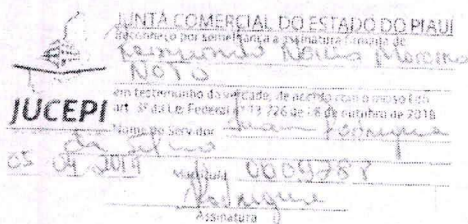 JUNTA COMERCIAL DO ESTADO DO PIAUI
Reconheço por semelhança a assinatura firmada de
Raimundo Moreira
em testemunho da verdade, de acordo com o inciso I do
art. 3º da Lei Federal nº 13.726 de 8 de outubro de 2018
JUCEPI
Nome do Servidor Rodrigues
da Silva
05 04 2019
Matrícula
Rodrigues
Assinatura